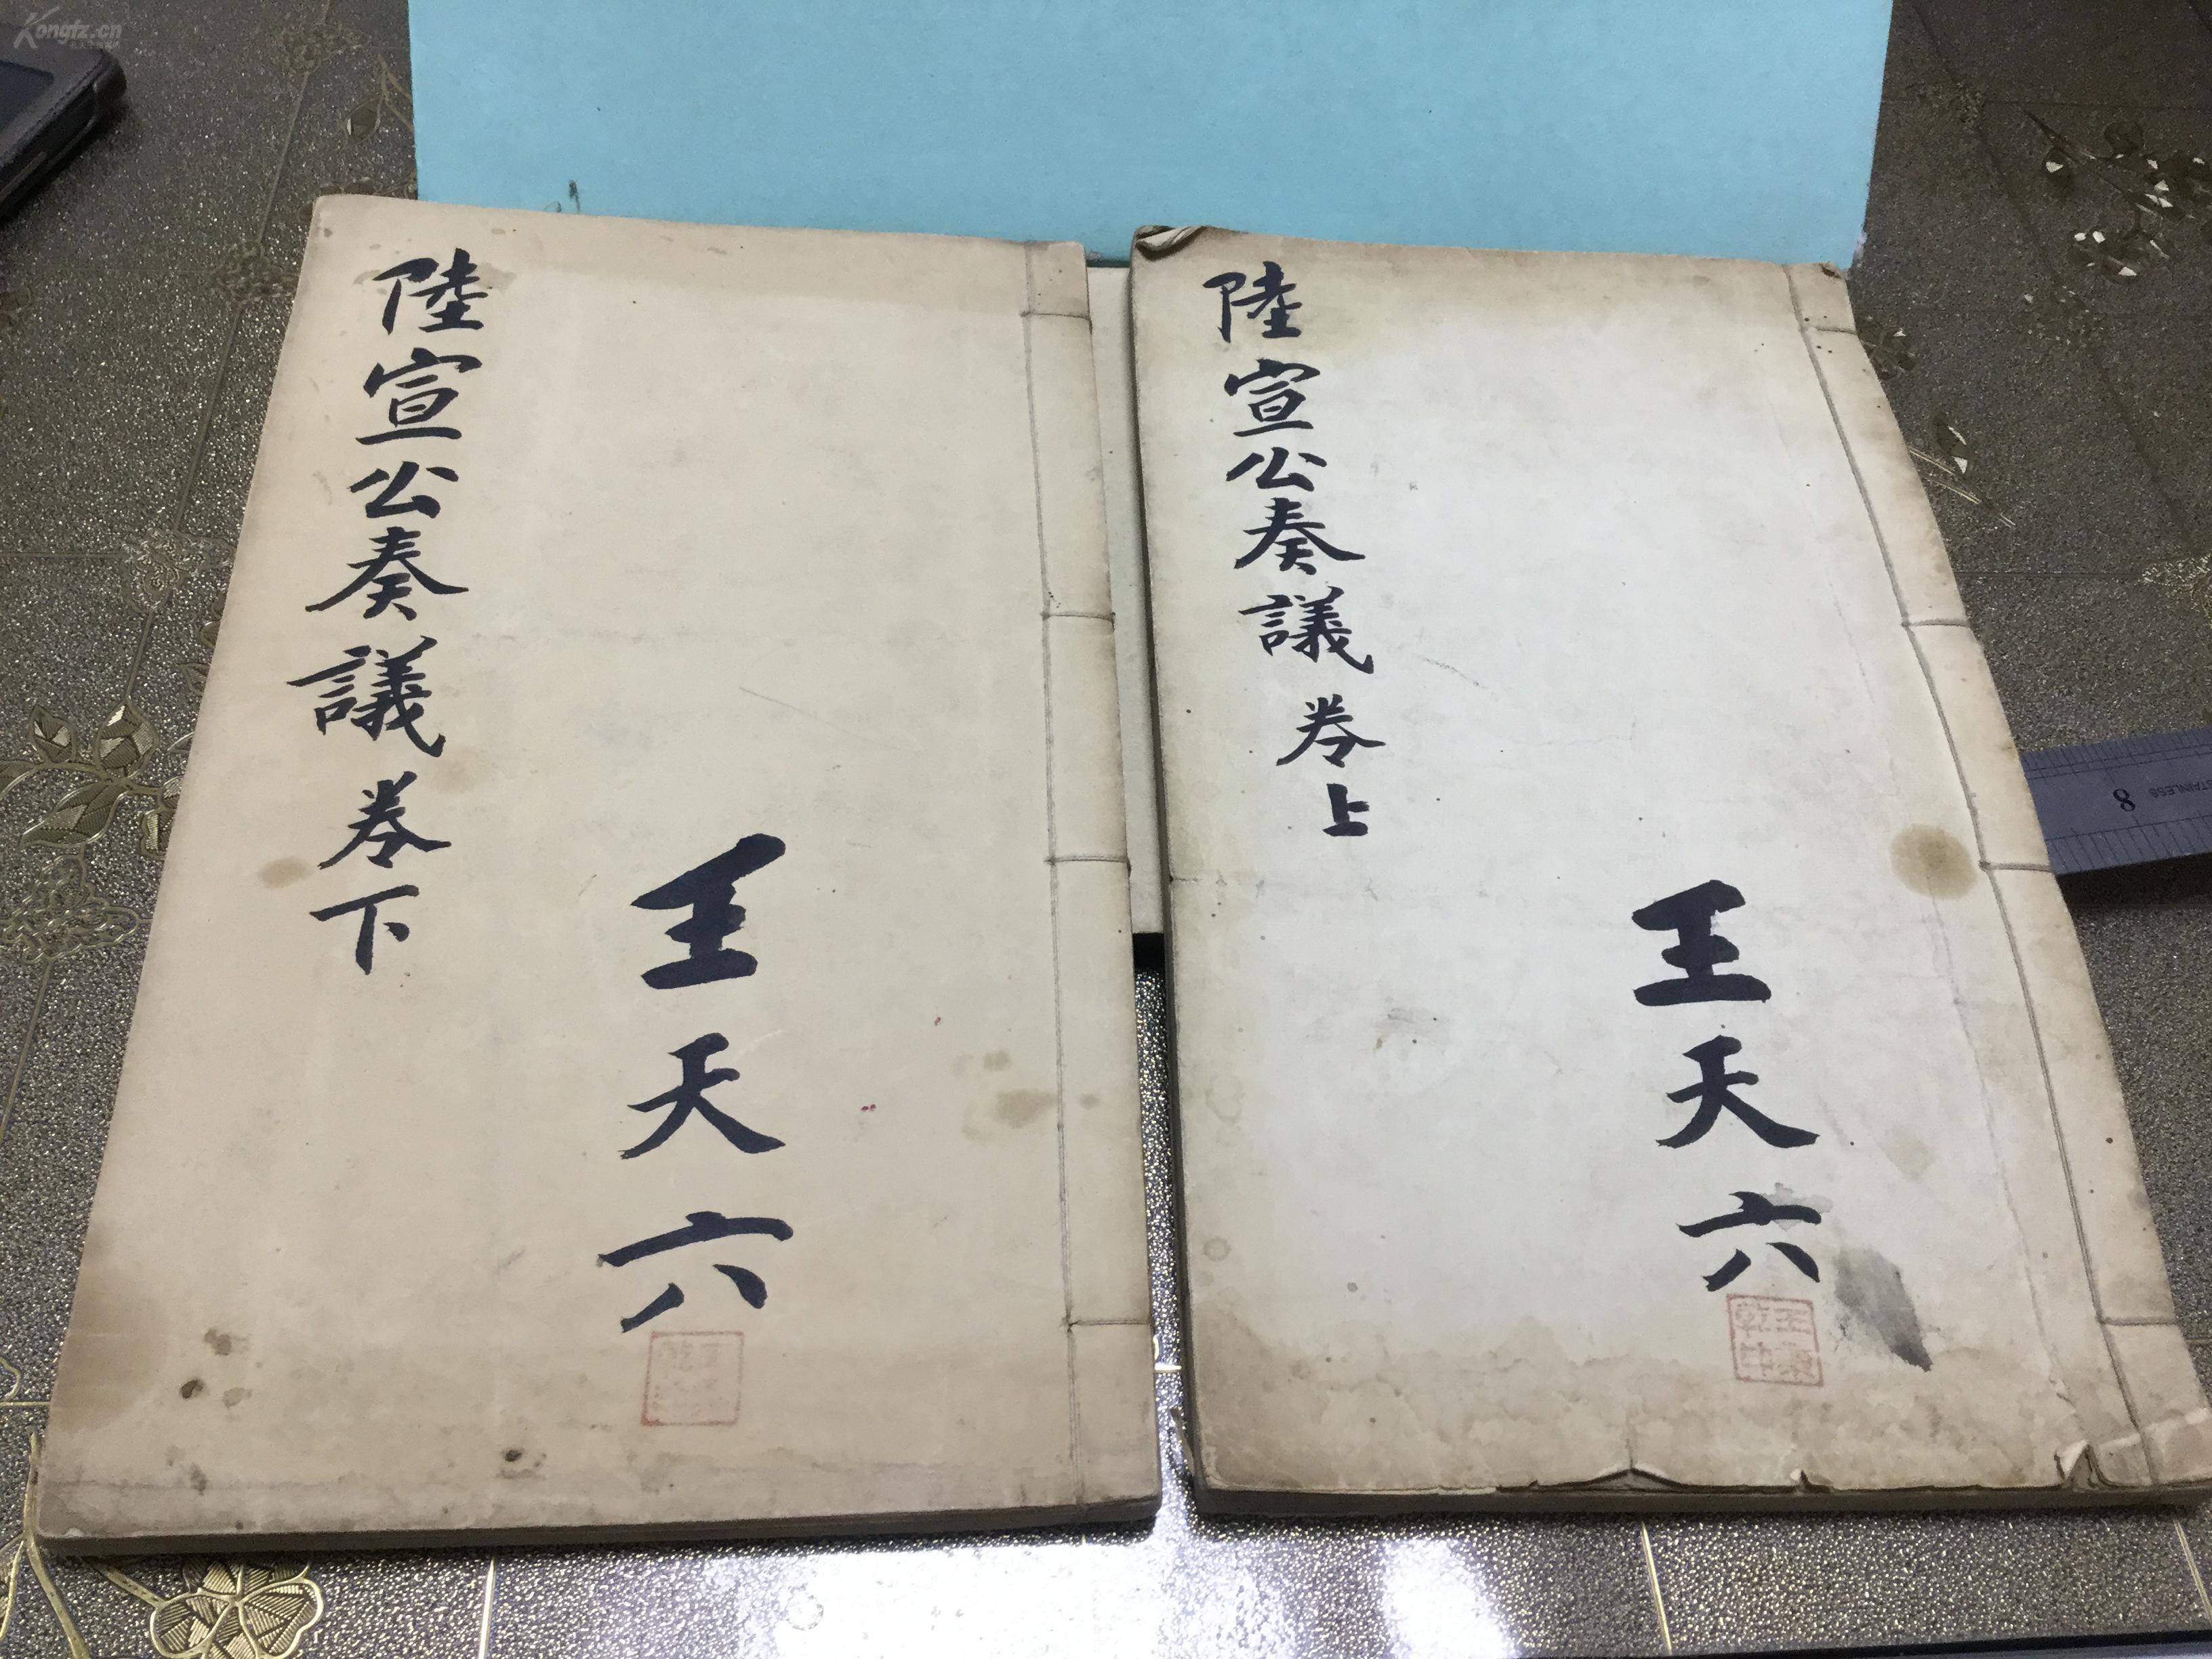 Kongfz.cn
陸宣公奏議卷下
王天六
陸宣公奏議卷上
王天六
STAINLESS
8